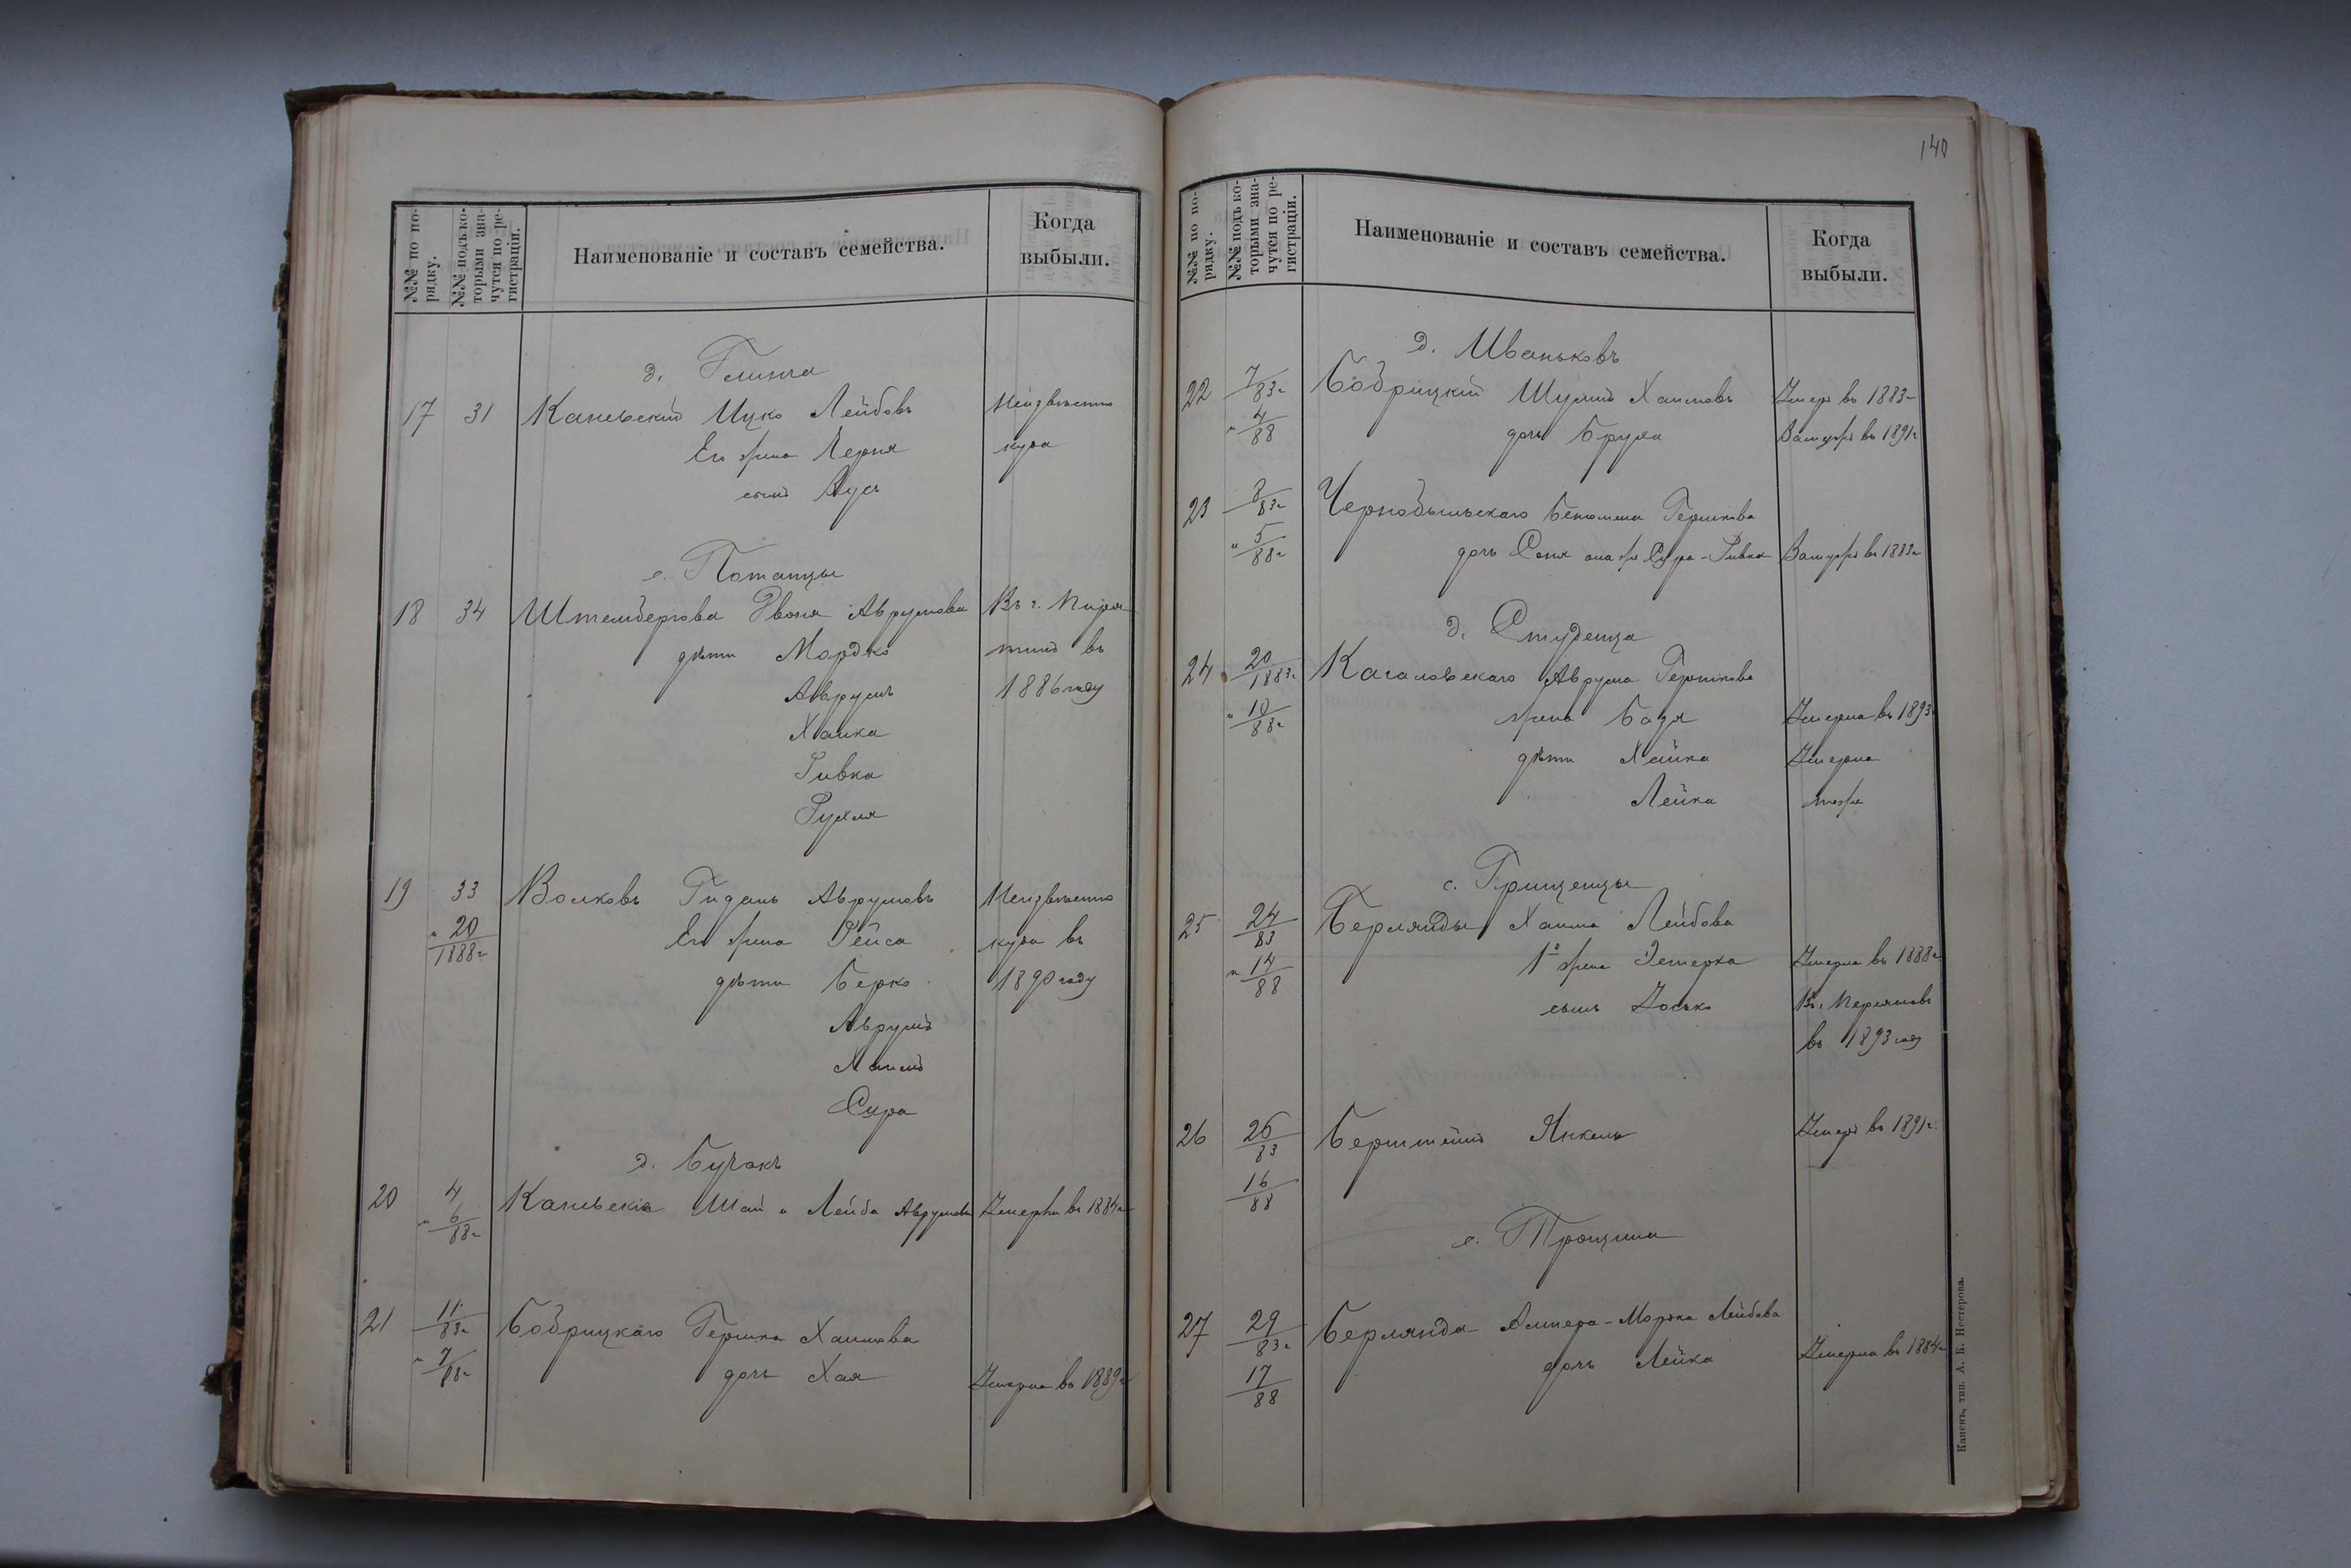 №№ по по-
рядку.
№№ подъ ко-
торыми зна-
чутся по ре-
гистраціи.
Наименованіе и составъ семейства.
Когда
выбыли.
д. Глинча
17 31 Каневскій Ицко Лейбовъ Неизвѣстно
Его жена Перля куда
сынъ
с. Потапцы
18 34 Штембергова Двоня Аврумова Въ г. Пиря
дѣти Мордко тинъ въ
Аврумъ 1886 году
Хаика
Ривка
Рухля
19 33 Волковъ Гиданъ Аврумовъ Неизвѣстно
и 20/1888г Его жена Рейса куда въ
дѣти Берко 1890 году
Аврумъ
Хаимъ
Сура
д. Бучакъ
20 4 Каневскіе Шая и Лейба Аврумовы Умерли въ 1884г
и 6/88г
21 11/83г Бобрицкаго Гершка Хаимова
и 7/88г дочь Хая Умерла въ 1889г
140
№№ по по-
рядку.
№№ подъ ко-
торыми зна-
чутся по ре-
гистраціи.
Наименованіе и составъ семейства.
Когда
выбыли.
д. Иваньковъ
22 7/83г Бобрицкій Шулимъ Хаимовъ Умеръ въ 1883г
и 4/88 дочь Бруха Замужъ въ 1891г
23 8/83г Чернобыльскаго Беньомина Гершкова
и 5/88г дочь Соня она же Сура-Ривка Замужъ въ 1883г
д. Студенца
24 20/1883г Кагаловскаго Аврума Гершкова
и 10/88г жена Бадя Умерла въ 1893
дѣти Хайка Умерла
Лейка тоже
с. Грищенцы
25 24/83 Берлянды Хаима Лейбова
и 14/88 1ª жена Эстерка Умерла въ 1888г
сынъ Іосько Въ г. Переяславъ
въ 1893 году
26 26/83 Берштейнъ Янкель Умеръ въ 1891г.
16/88
с. Трощина
27 29/83г Берлянда Алтера-Мордка Лейбова
17/88 дочь Лейка Умерла въ 1884г
Каневъ, тип. А. К. Нестерова.